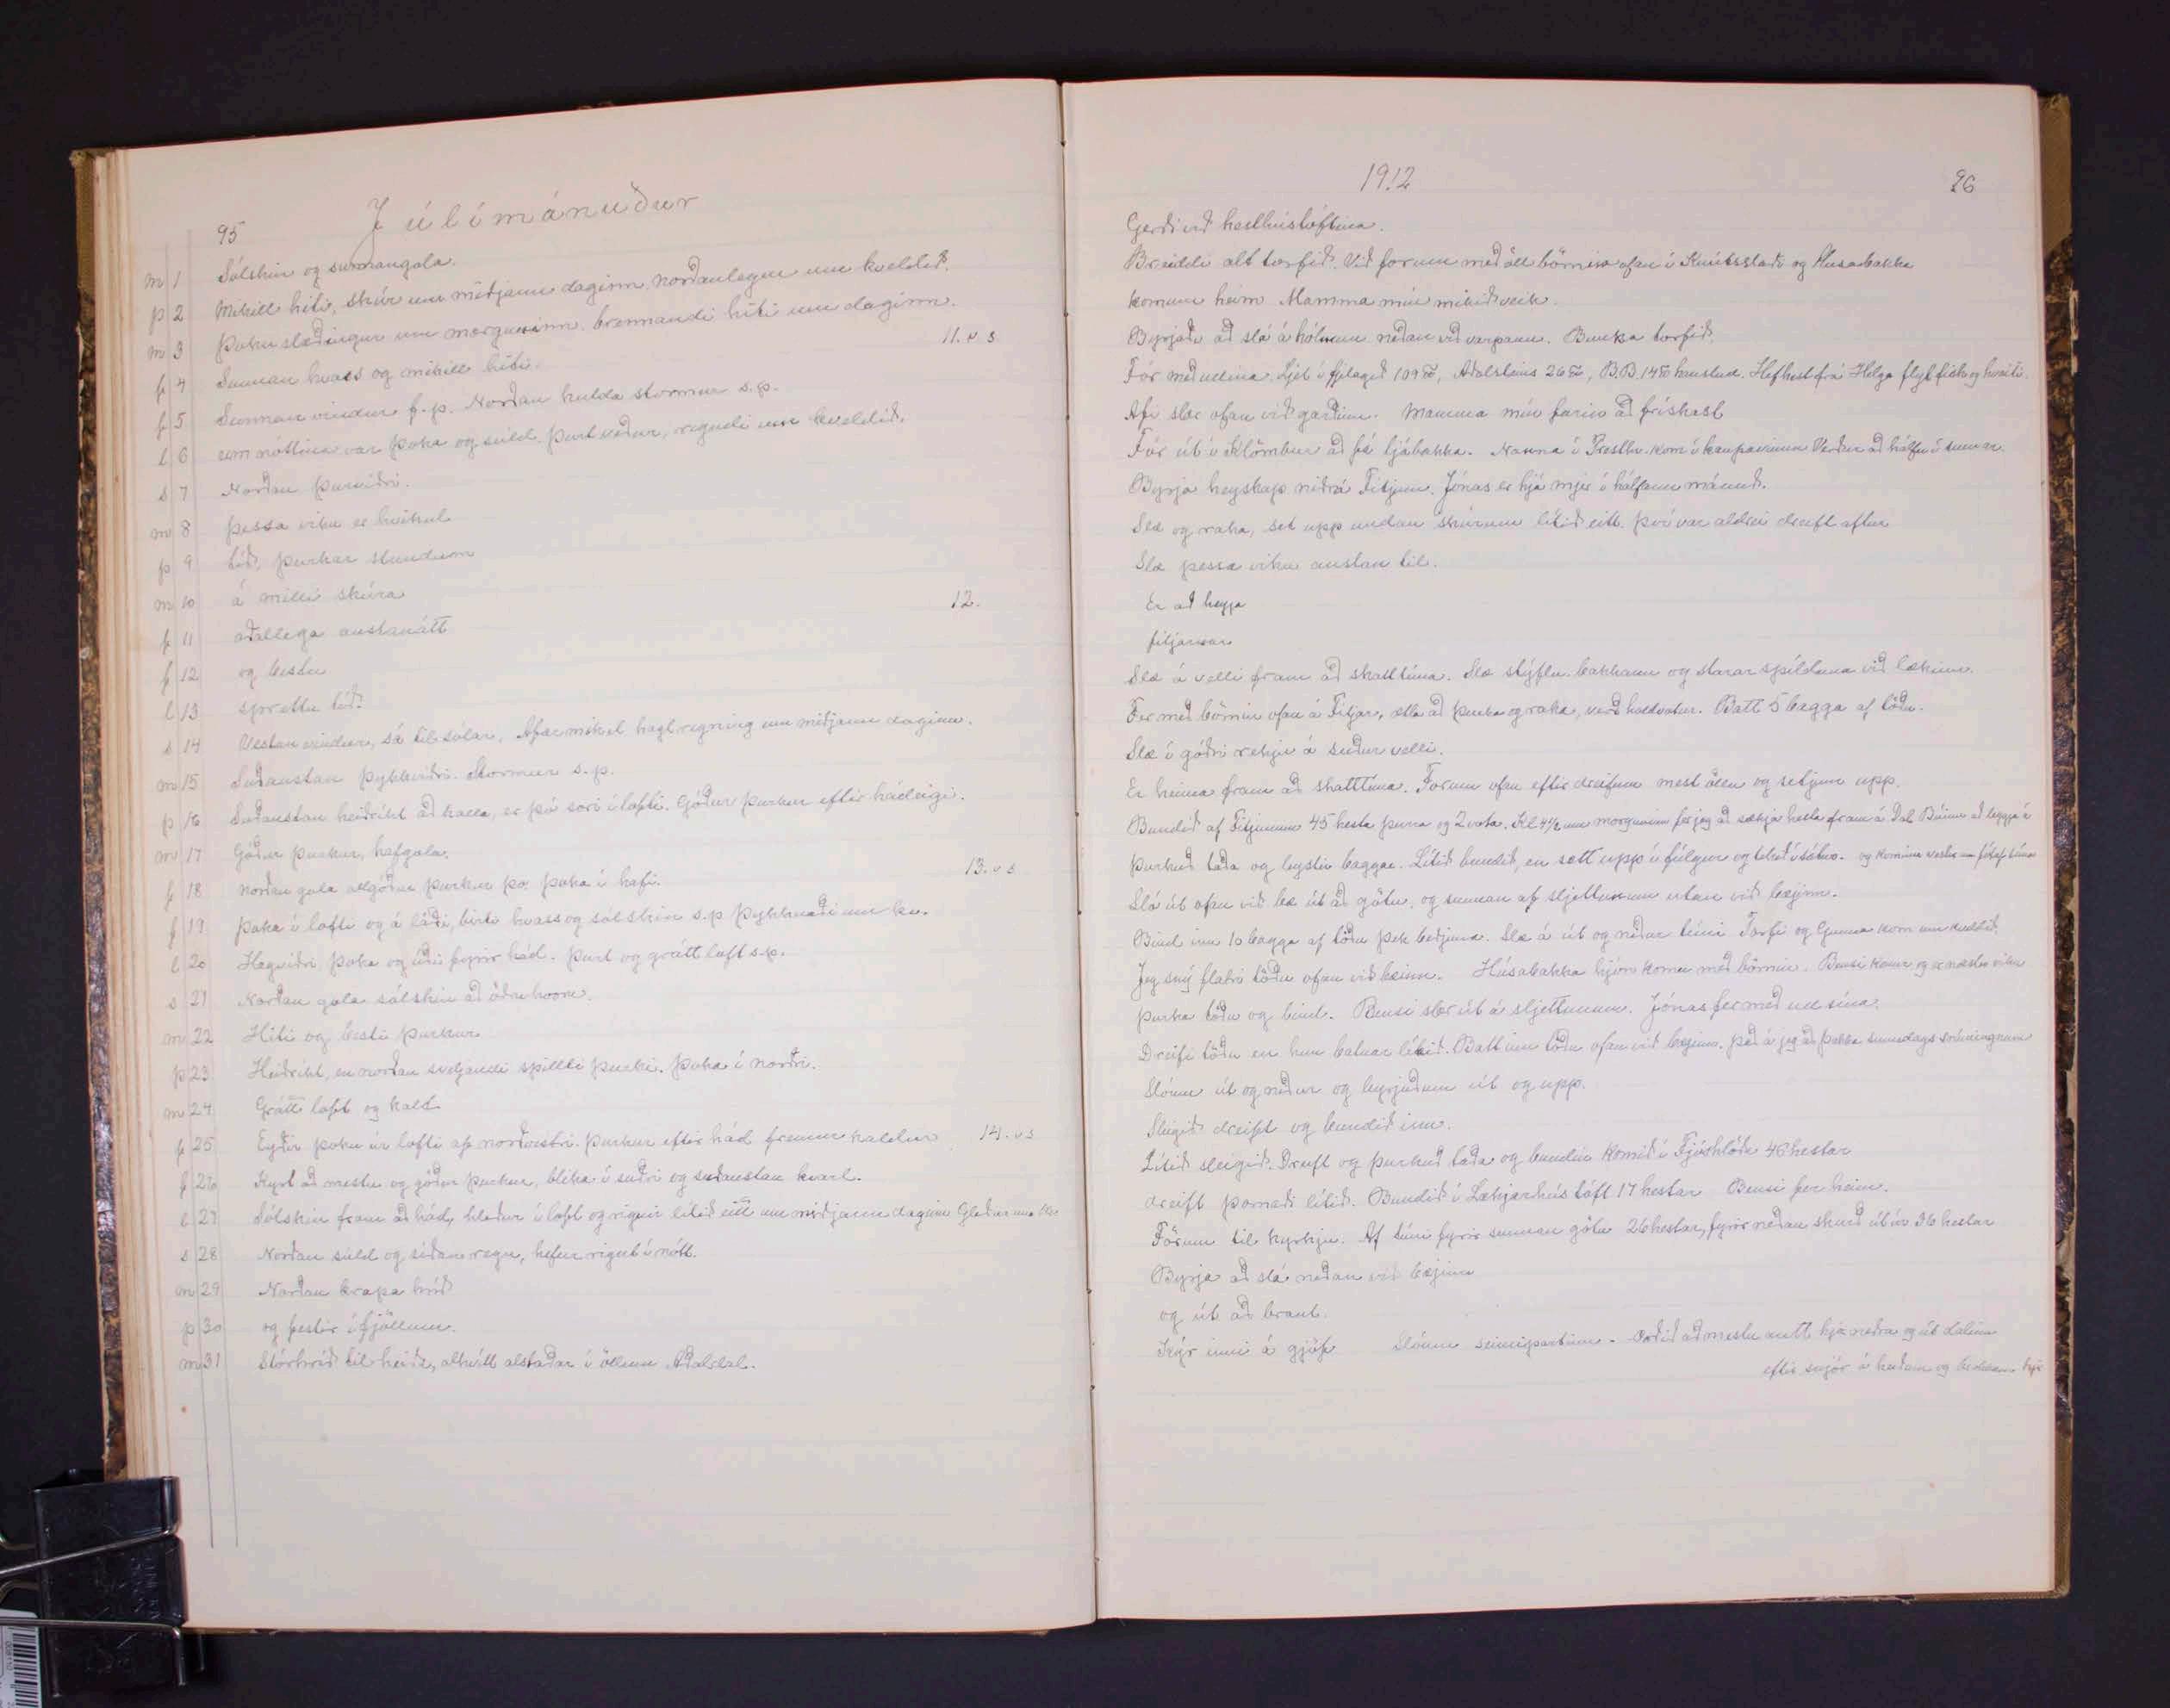 95
Júlímánuður
m 1 Sólskin og sunnangola.
þ 2 Mikill hiti, skúr um miðjann daginn, norðanlægur um kveldið.
m 3 Þoku slæðingur um morguninn, brennandi hiti um daginn.
f 4 Sunnan hvass og mikill hiti. 11. v s
f 5 Sunnan vindur f.p. Norðan kulda stormur s.p.
l 6 um nóttina var þoka og súld. Þurt veður, rigndi um kveldið.
s 7 Norðan þurviðri.
m 8 þessa viku er hvikul
þ 9 tíð, þurkar stundum
m 10 á milli skúra
f 11 aðallega austanátt 12.
f 12 og besta
l 13 sprettu tíð.
s 14 Vestan vindur, sá til sólar. Afar mikil hagl regning um miðjann daginn.
m 15 Suðaustan þykkviðri. Stormur s.p.
þ 16 Suðaustan heiðríkt að kalla, er þó sori í lofti. Góður þurkur eftir hádeigi.
m 17 Góður þurkur, hafgola.
f 18 norðan gola allgóður þurkur þó þoka í hafi. 13. v s
f 19 Þoka í lofti og á láði, hvass og sólskin s.p. þykknaði um kv.
l 20 Hægviðri þoka og úði fyrir hád. Þurt og grátt loft s.p.
s 21 Norðan gola sólskin að öðru hvoru.
m 22 Hiti og besti þurkur
þ 23 Heiðríkt, en norðan sveljandi spillti þurki. Þoka í norðri.
m 24 Grátt loft og kalt
f 25 Eyðir þoku úr lofti af norðvestri. Þurkur eftir hád fremur kaldur 14. v s
f 26 Kyrt að mestu og góður þurkur, blika í suðri og suðaustan kvart.
l 27 Sólskin fram að hád, hleður í loft og rignir lítið eitt um miðjann daginn
s 28 Norðan súld og síðan regn, hefur rignt í nótt.
m 29 Norðan krapa hríð
þ 30 og festir í fjöllum.
m 31 Stórhríð til heiða, alhvítt alstaðar í öllum Aðaldal.
1912
96
Gerði við hesthústóftina.
Breiddi alt torfið. Við forum með öll börnin ofan í Knútsstaði og Húsabakka
komum heim. Mamma mín mikið veik.
Byrjaði að slá á hólnum neðan við varpann. Bunka torfið.
Fór með ullina. Ljet í fjelagið 109 ℔, Aðalsteins 26 ℔, B.B. 14 ℔ haustul. Hef hest frá Helga flyt fisk og hveiti.
Afi slær ofan við garðinn. Mamma mín farin að frískast
Fór út í Klömbur að fá ljábakka. Nanna í Presthv. kom í kaupavinnu Verður að hálfu í sumar.
Byrja heyskap niðrá Fitjum. Jónas er hjá mjer í hálfann mánuð.
Slæ og raka, set upp undan skúrum lítið eitt. því var aldrei dreift aftur
Slæ þessa viku austan til.
Er að heyja
fitjarnar
Slæ á velli fram að skattíma. Slæ stýflu bakkann og starar spilduna við lækinn.
Fer með börnin ofan á Fitjar, ætla að þurka og raka, varð haldvotur. Batt 5 bagga af töðu.
Slæ í góðri rekju á suður velli.
Er heima fram að skatttíma. Forum ofan eftir dreifum mest öllu og setjum upp.
Bundið af Fitjunum 45 hesta þurra og 2 vota. Kl 4½ um morguninn fer jeg að sækja hesta fram á Dal Búinn að leggja á
Þurkuð taða og leystir baggar. Lítið bundið, en sett upp í fúlgur og tekið í sátur. og kominn vestur um fótaf tíma
Slá út ofan við bæ út að götu, og sunnan af sljettunum utan við bæjinn.
Bind inn 10 bagga af töðu þek beðjuna. Slæ á út og niður túni Torfi og Gunna kom um kveldið.
Jeg sný flatri töðu ofan við bæinn. Húsabakka hjón komu með börnin. Bensi kemur og er næstu viku
þurka töðu og bind. Bensi slær út á sljettunum. Jónas fer með ull sína.
Dreifi töðu en hún batnar lítið. Batt inn töðu ofan við bæjinn. það á jeg að þakka sunndags
Slóum út og niður og byrjuðum út og upp.
Sleigið dreift og bundið inn.
Lítið sleigið. Dreift og þurkuð taða og bundin Komið í Fjóshlöðu 46 hestar
dreift þornaði lítið. Bundið í Lækjarhús tóft 17 hestar Bensi fer heim.
Förum til kyrkju. Af túni fyrir sunnan götu 26 hestar, fyrir neðan skurð út úr 36 hestar
Byrja að slá neðan við bæjinn
og út að braut.
Kýr inni á gjöf Slóum seinnipartinn. að mestu autt hjá neðra og út dalinn
eftir snjór á